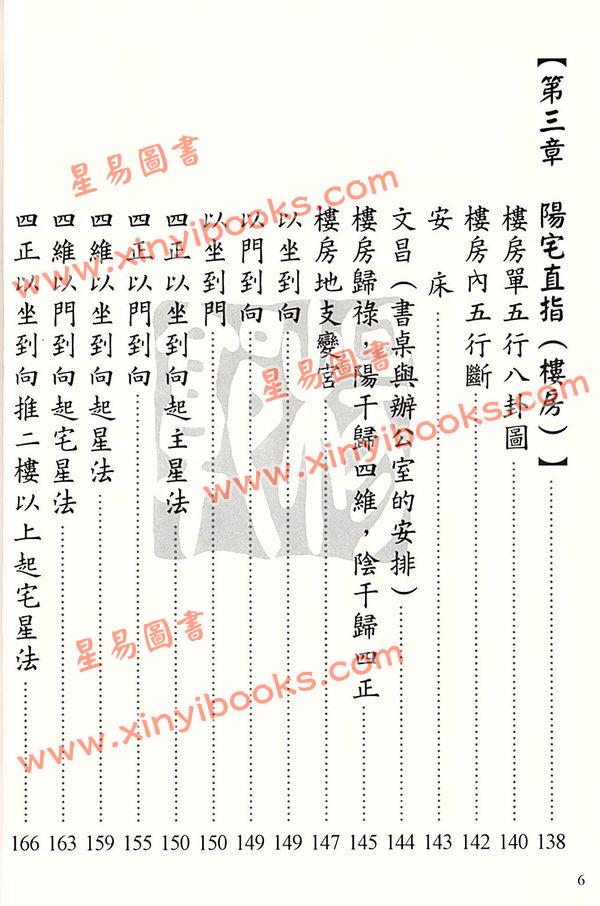 【第三章　陽宅直指（樓房）】……138
樓房單五行八卦圖……140
樓房內五行斷……142
安　床……143
文昌（書桌與辦公室的安排）……144
樓房歸祿，陽干歸四維，陰干歸四正……145
樓房地支變宮……147
以坐到向……149
以門到向……149
以坐到門……150
四正以坐到向起主星法……150
四正以門到向……155
四維以坐到向起星法……159
四維以門到向起宅星法……163
四正以坐到向推二樓以上起宅星法……166
6
星易圖書
www.xinyibooks.com
星易圖書
www.xinyibooks.com
星易圖書
www.xinyibooks.com